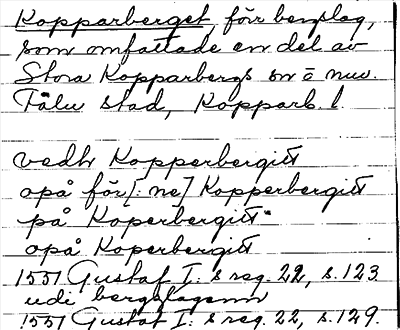 Kopparberget, förr bergslag,
som omfattade en del av
Stora Kopparbergs sn o nuv.
Falu stad, Kopparb. l.
vedh Kopperbergitt
opå för[:ne] Kopperbergitt
på Koperbergitt
opå Koperbergitt
1551 Gustaf I:s reg. 22, s. 123.
udi bergslagenn
1551 Gustaf I:s reg. 22, s. 129.